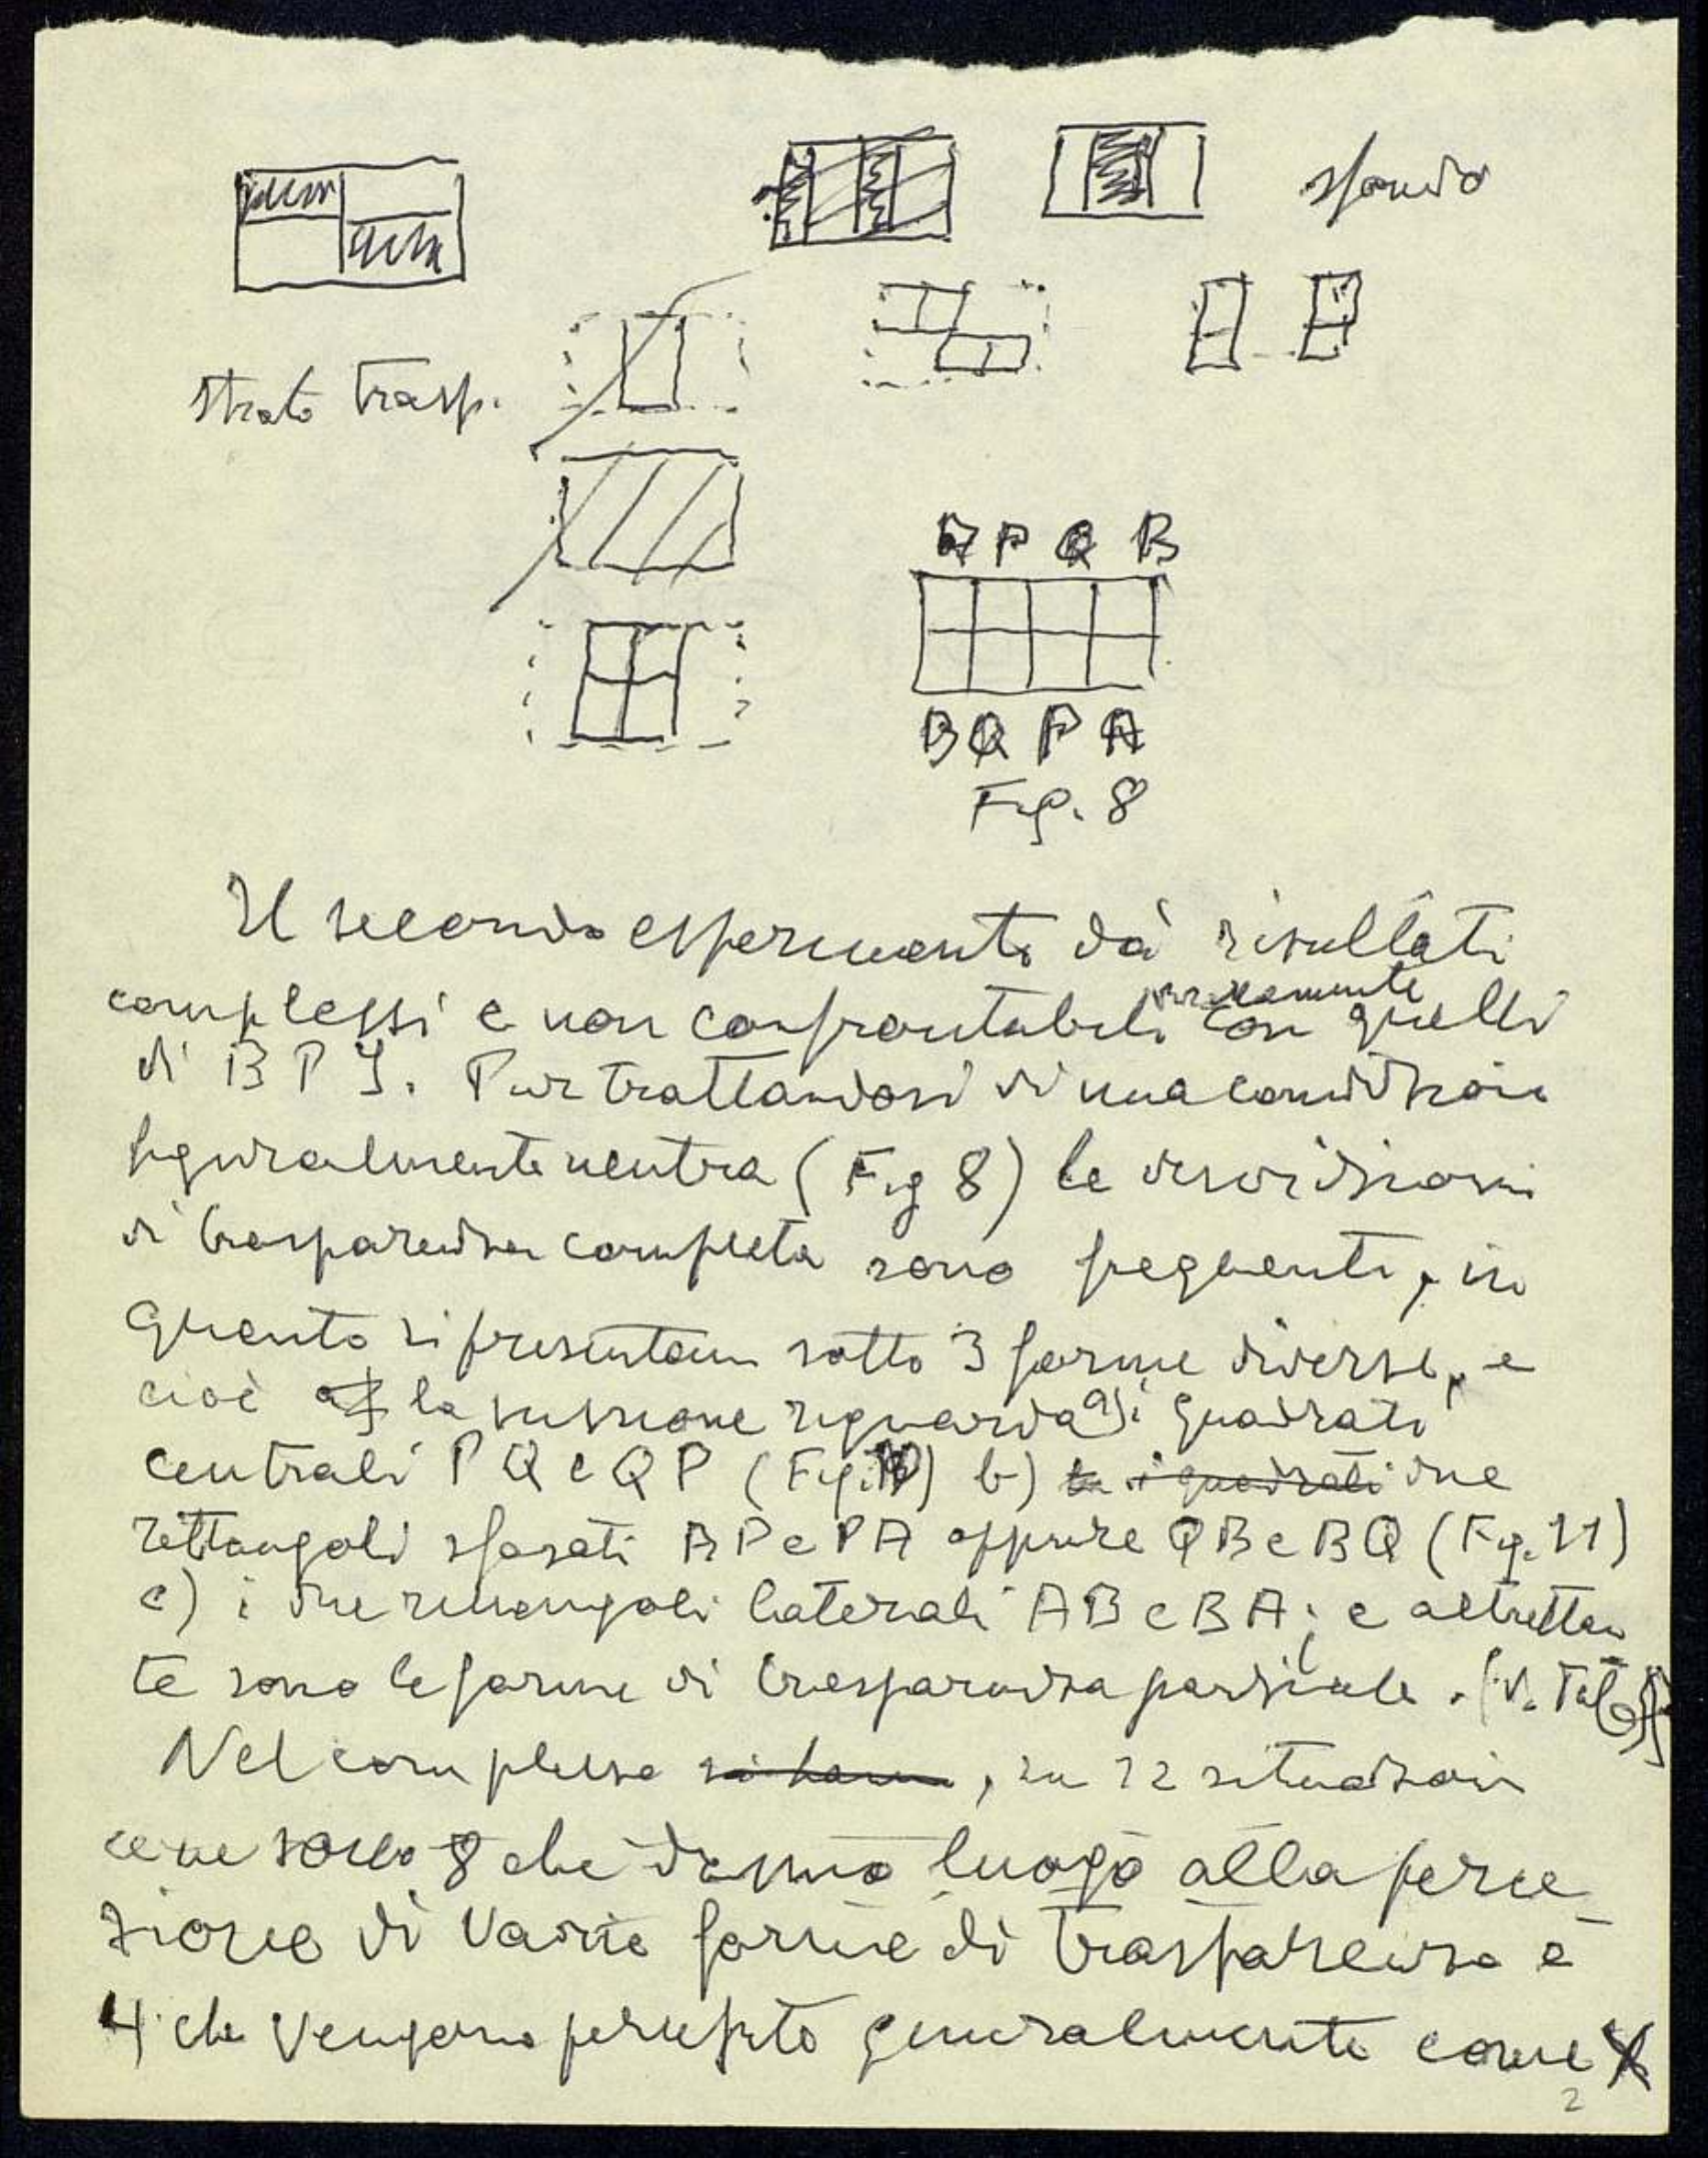 sfondo
strato trasp.
A P Q B
B Q P A
Fig. 8
Il secondo esperimento dà risultati
complessi e non confrontabili con quelli
di B P I. Pur trattandosi di una condizione
figuralmente neutra (Fig 8) le descrizioni
di trasparenza completa sono frequenti, in
quanto si presentano sotto 3 forme diverse, e
cioè la scissione riguarda a) i quadrati
centrali P Q e Q P (Fig. 10) b) i quadrati due
rettangoli sfasati AP e PA oppure QB e BQ (Fig. 11)
c) i due rettangoli laterali AB e BA; e altrettan
te sono le forme di trasparenza parziale. (V. Tab
Nel complesso si hanno, su 12 situazioni
ce ne sono 8 che danno luogo alla perce
zione di varie forme di trasparenza e
4 che vengono percepite generalmente come
2